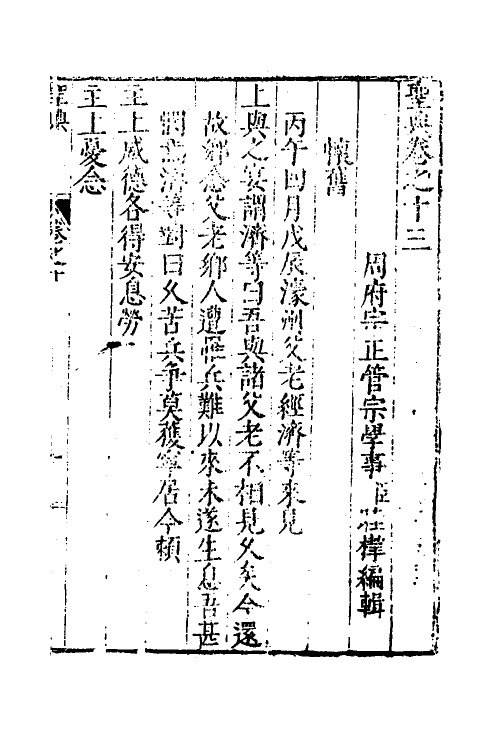 聖典卷之十三
周府宗正管宗學事 睦㮮編輯
懷舊
丙午四月戊辰濠州父老經濟等來見
上與之宴謂濟等曰吾與諸父老不相見久矣今還
故鄉念父老鄉人遭罹兵難以來未遂生息吾甚
憫焉濟等對曰久苦兵爭莫獲寧居今賴
主上威德各得安息勞
主上憂念
聖典 卷之十